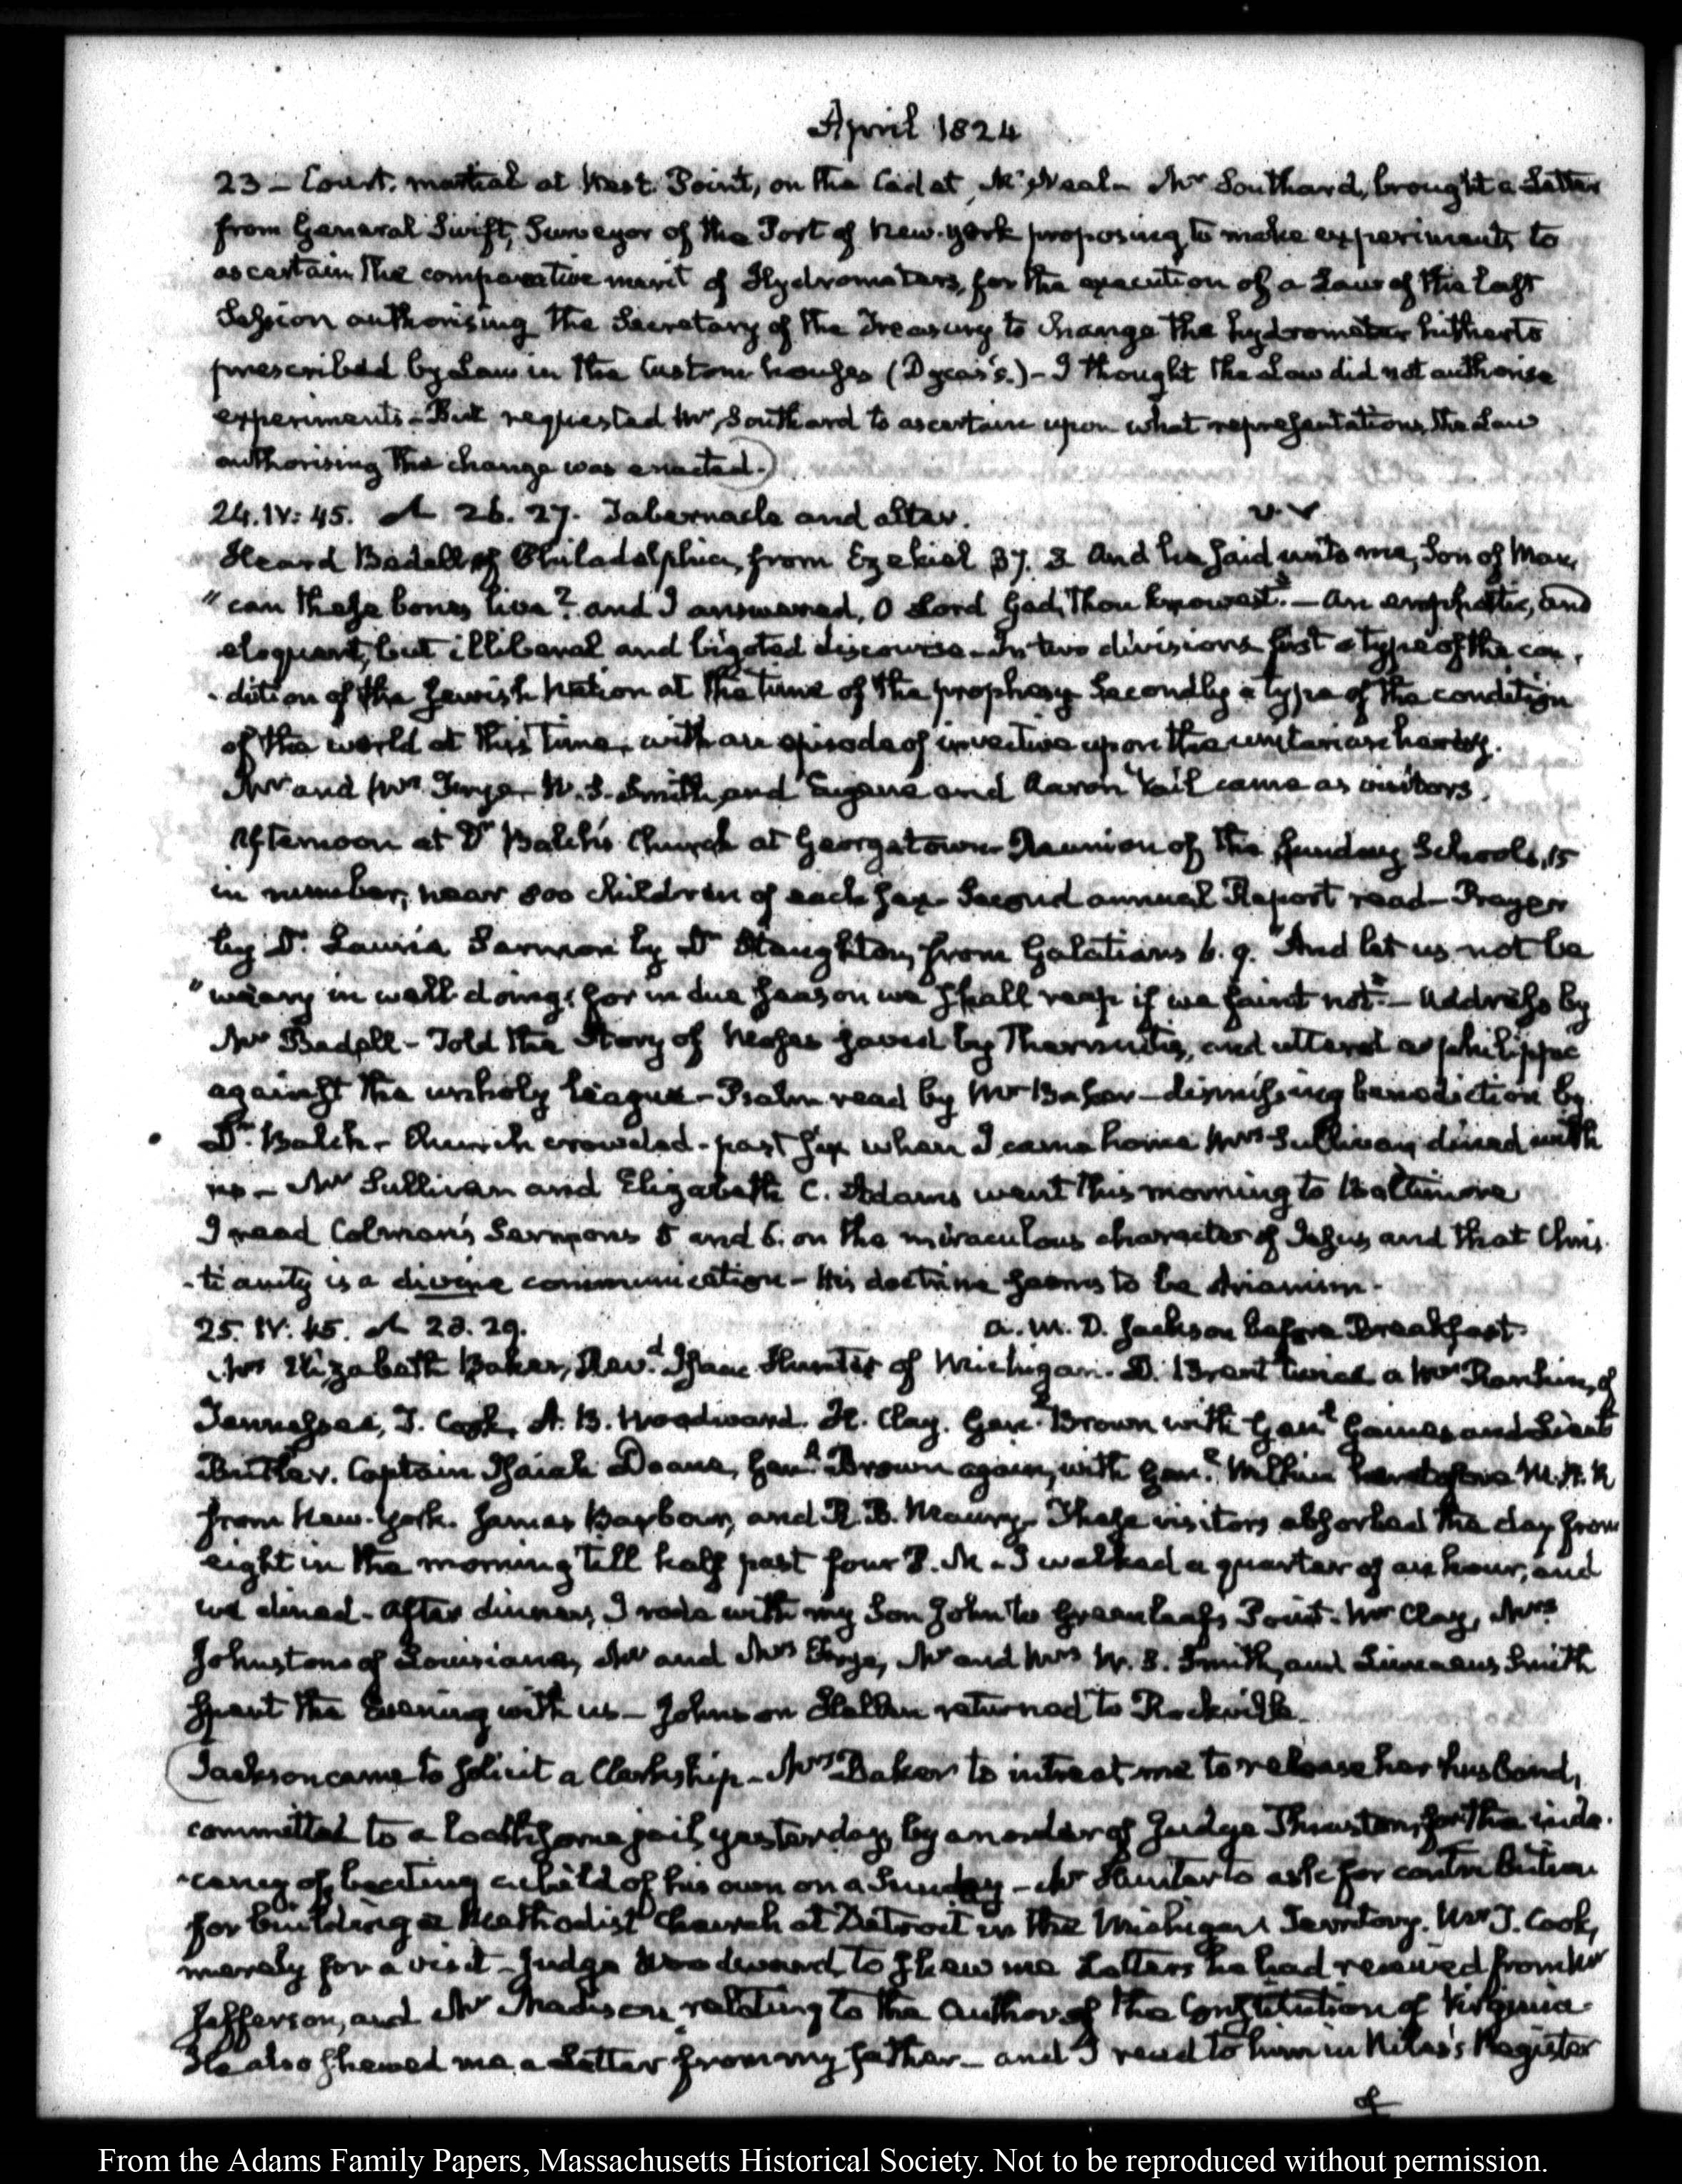 April 1824
23 – Court martial at West Point, on the Cadet McNeal – Mr Southard, brought a Letter
from General Swift, Surveyor of the Port of New-York proposing to make experiments to
ascertain the comparative merit of Hydrometers, for the execution of a Law of the last
Session authorising the Secretary of the Treasury to change the hydrometer hitherto
prescribed by Law in the Custom houses (Dycas's.) – I thought the Law did not authorise
experiments – But requested Mr Southard to ascertain upon what representations the Law
authorising the change was enacted.)
24. IV: 45. 26. 27. Tabernacle and altar.
Heard Bedell of Philadelphia, from Ezekiel 37. 3 And he said unto me, Son of Man,
"can these bones live? and I answered, O Lord God, thou knowest." – An emphatic, and
eloquent, but illiberal and bigoted discourse – In two divisions first a type of the con-
-dition of the Jewish Nation at the time of the prophesy Secondly a type of the condition
of the world at this time, with an episode of invective upon the unitarian heresy.
Mr and Mrs Frye, W. S. Smith, and Eugene and Aaron Vail came as visitors.
Afternoon at Dr Balch's Church at Georgetown Reunion of the Sunday Schools, 15
in number, near 800 children of each sex – Second annual Report read – Prayer
by Dr. Laurie Sermon by Dr Staughton, from Galatians 6. 9. "And let us not be
"weary in well doing: for in due season we shall reap if we faint not" – Address by
Mr Bedell – Told the Story of Moses saved by Thermutis, and uttered a philippic
against the unholy league – Psalm read by Mr Baker – dismissing benediction by
Dr. Balch – Church crowded – past six when I came home Mrs Sullivan dined with
us – Mr Sullivan and Elizabeth C. Adams went this morning to Baltimore
I read Colman's Sermons 5 and 6. on the miraculous character of Jesus and that Chris-
-tianity is a divine communication – His doctrine seems to be Arianism –
25. IV: 45. 28. 29. A. M. D. Jackson before Breakfast
Mrs Elizabeth Baker, Revd. Isaac Hunter of Michigan. D. Brent twice a Mr Rankin, of
Tennessee, J. Cook, A. B. Woodward. H. Clay. Genl Brown with Genl Gaines and Lieut
Butler. Captain Isaiah Doane, Genl Brown again, with Genl. heretofore M.H.R
from New-York. James Barbour, and R. B. Maury. These visitors absorbed the day from
eight in the morning till half past four P. M – I walked a quarter of an hour, and
we dined – After dinner, I rode with my Son John to Greenleaf's Point – Mr Clay, Mrs
Johnston of Louisiana, Mr and Mrs Frye, Mr and Mrs W. S. Smith, and Linnaeus Smith
spent the Evening with us – Johnson Hellen returned to Rockville.
(Jackson came to solicit a Clerkship – Mrs Baker to intreat me to release her husband,
committed to a loathsome jail, yesterday, by an order of Judge Thruston, for the inde-
-cency of beating a child of his own on a Sunday – Mr Hunter to ask for contribution
for building a Methodist Church at Detroit in the Michigan Territory. Mr J. Cook,
merely for a visit – Judge Woodward, to shew me Letters he had received from Mr
Jefferson, and Mr Madison relating to the author of the Constitution of Virginia –
He also shewed me a Letter from my father – and I read to him in Niles's Register
of
From the Adams Family Papers, Massachusetts Historical Society. Not to be reproduced without permission.